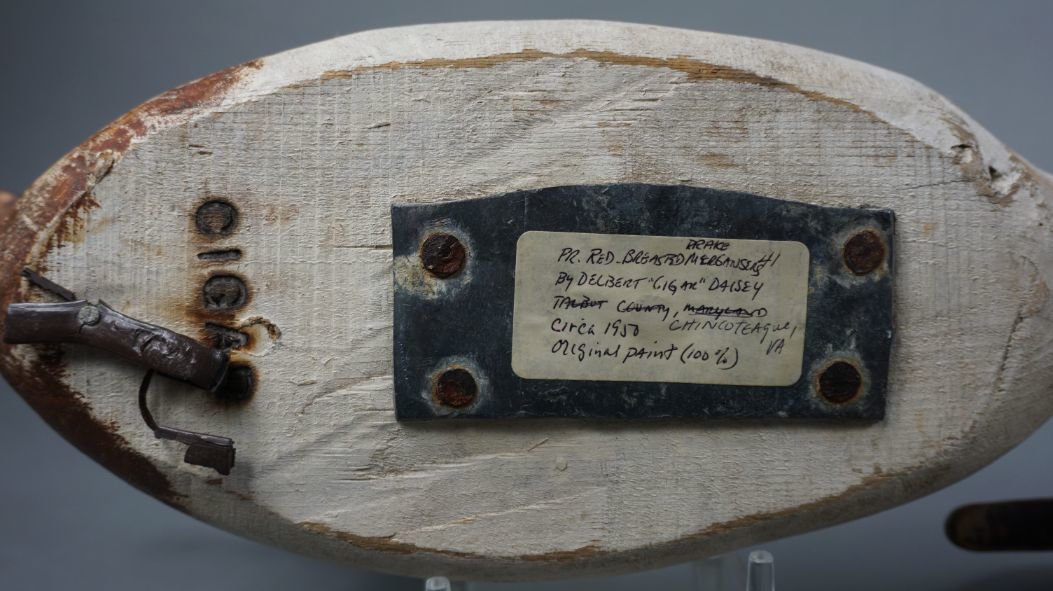 CIGAR
DRAKE
PR. RED-BREASTED MERGANSERS #1
BY DELBERT "CIGAR" DAISEY
TALBOT COUNTY, MARYLAND
Circa 1950 CHINCOTEAGUE,
Original paint (100%) VA